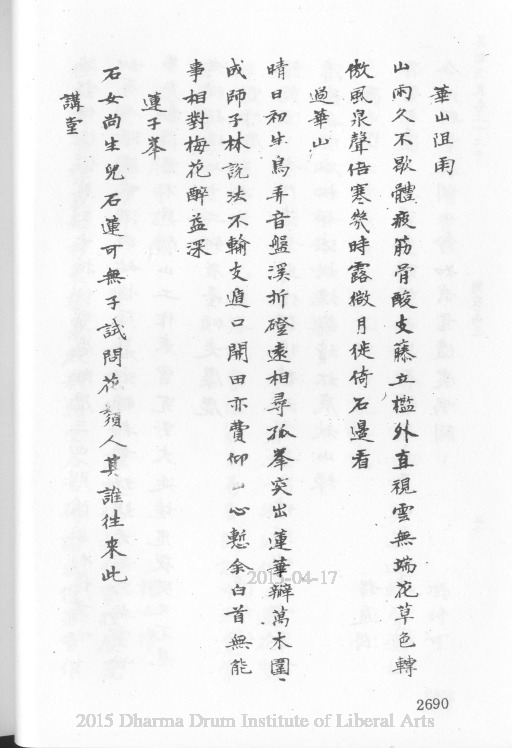 華山阻雨
山雨久不歇體疲筋骨酸支藤立檻外直視雲無端花草色轉
傲風泉聲倍寒幾時露微月徙倚石邊看
過華山
晴日初生鳥弄音盤溪折磴遠相尋孤峯突出蓮華瓣萬木圍
成師子林說法不輸支遁口開田亦費仰山心慙余白首無能
事相對梅花醉益深
蓮子峯
石女尚生兒石蓮可無子試問花蘋人其誰往來此
講堂
2015-04-17
2690
2015 Dharma Drum Institute of Liberal Arts